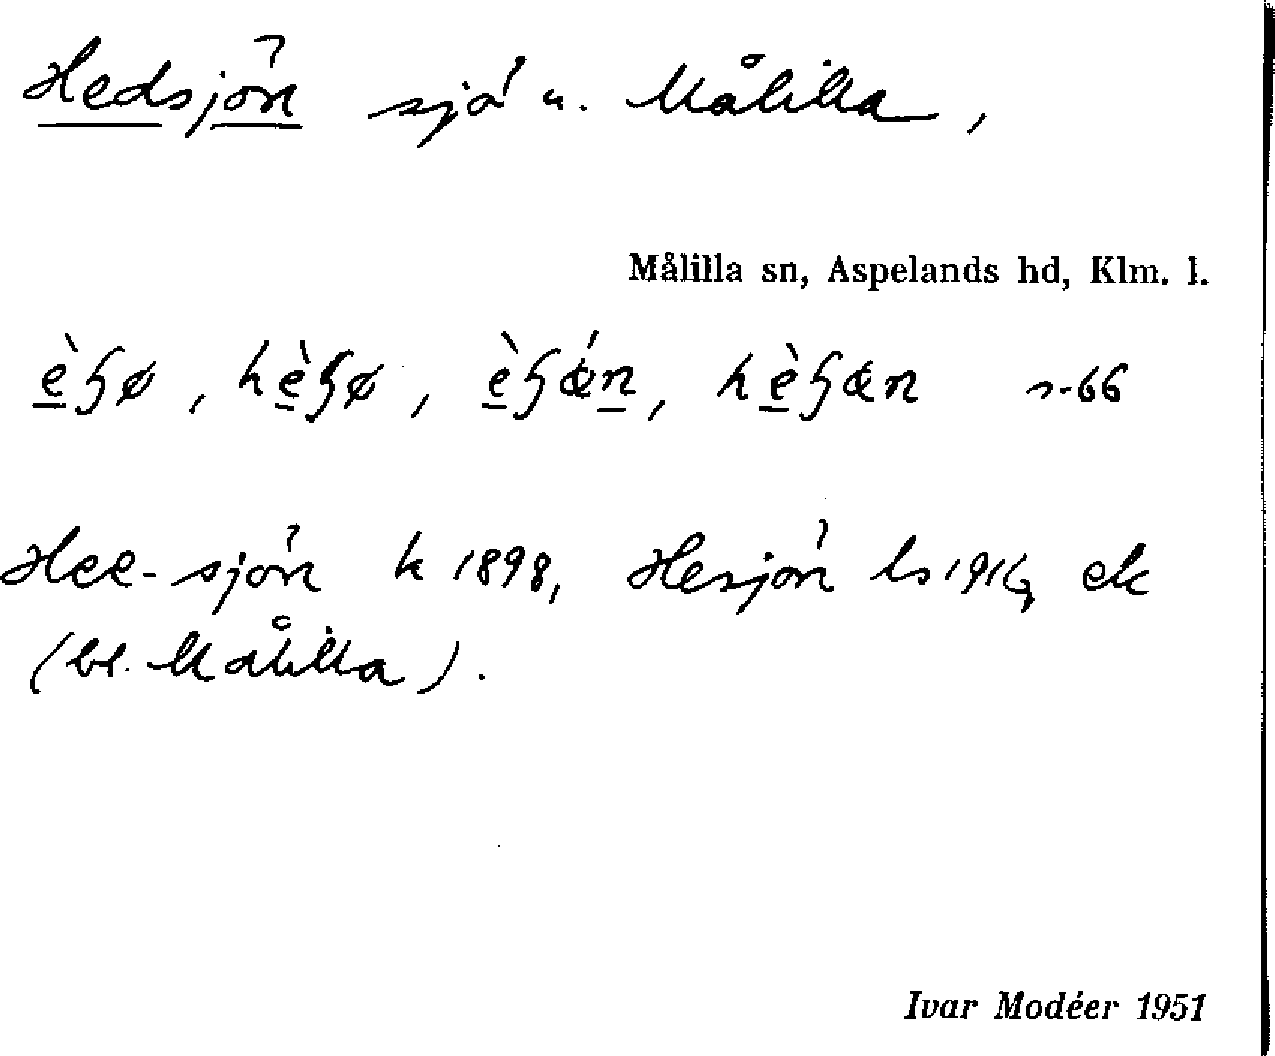 Hedsjön sjö u. Målilla,
Målilla sn, Aspelands hd, Klm. l.
èɧø, hèɧø, èɧǿn, hèɧœn s. 66
Hee-sjön k 1898, Hesjön ls 1916, ek
(bl. Målilla).
Ivar Modéer 1951